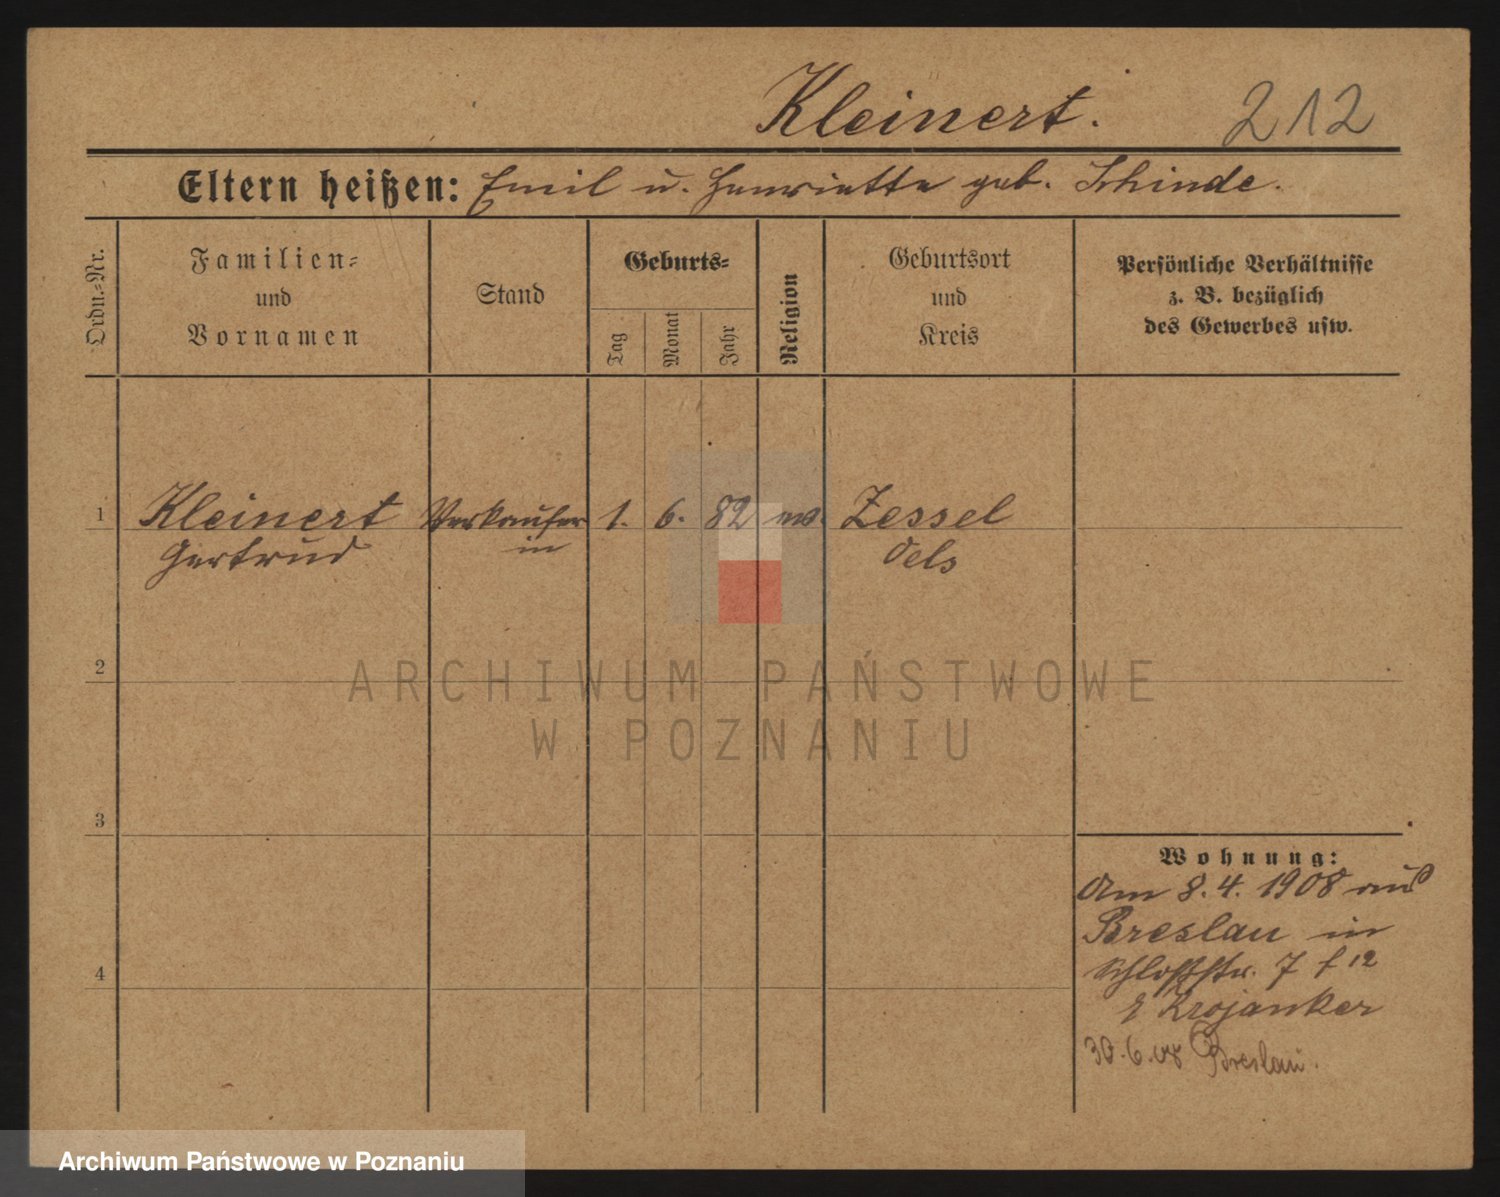 Kleinert. 212
Eltern heißen: Emil u. Henriette geb. Schinde.
Ordn.-Nr.
Familien-
und
Vornamen
Stand
Geburts-
Tag
Monat
Jahr
Religion
Geburtsort
und
Kreis
Persönliche Verhältnisse
z. B. bezüglich
des Gewerbes usw.
1 Kleinert Verkäufer 1. 6. 82 ev. Zessel
Gertrud in Oels
2
ARCHIWUM PAŃSTWOWE
W POZNANIU
3
4
Wohnung:
Am 8.4.1908 aus
Breslau in
Schloßstr. 7 f 12
Krojanker
30.6.08 Breslau.
Archiwum Państwowe w Poznaniu